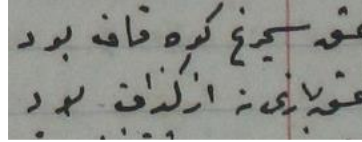 عشق سیمرغ کوه قاف بود
عشق بازی نه از گذاف بود